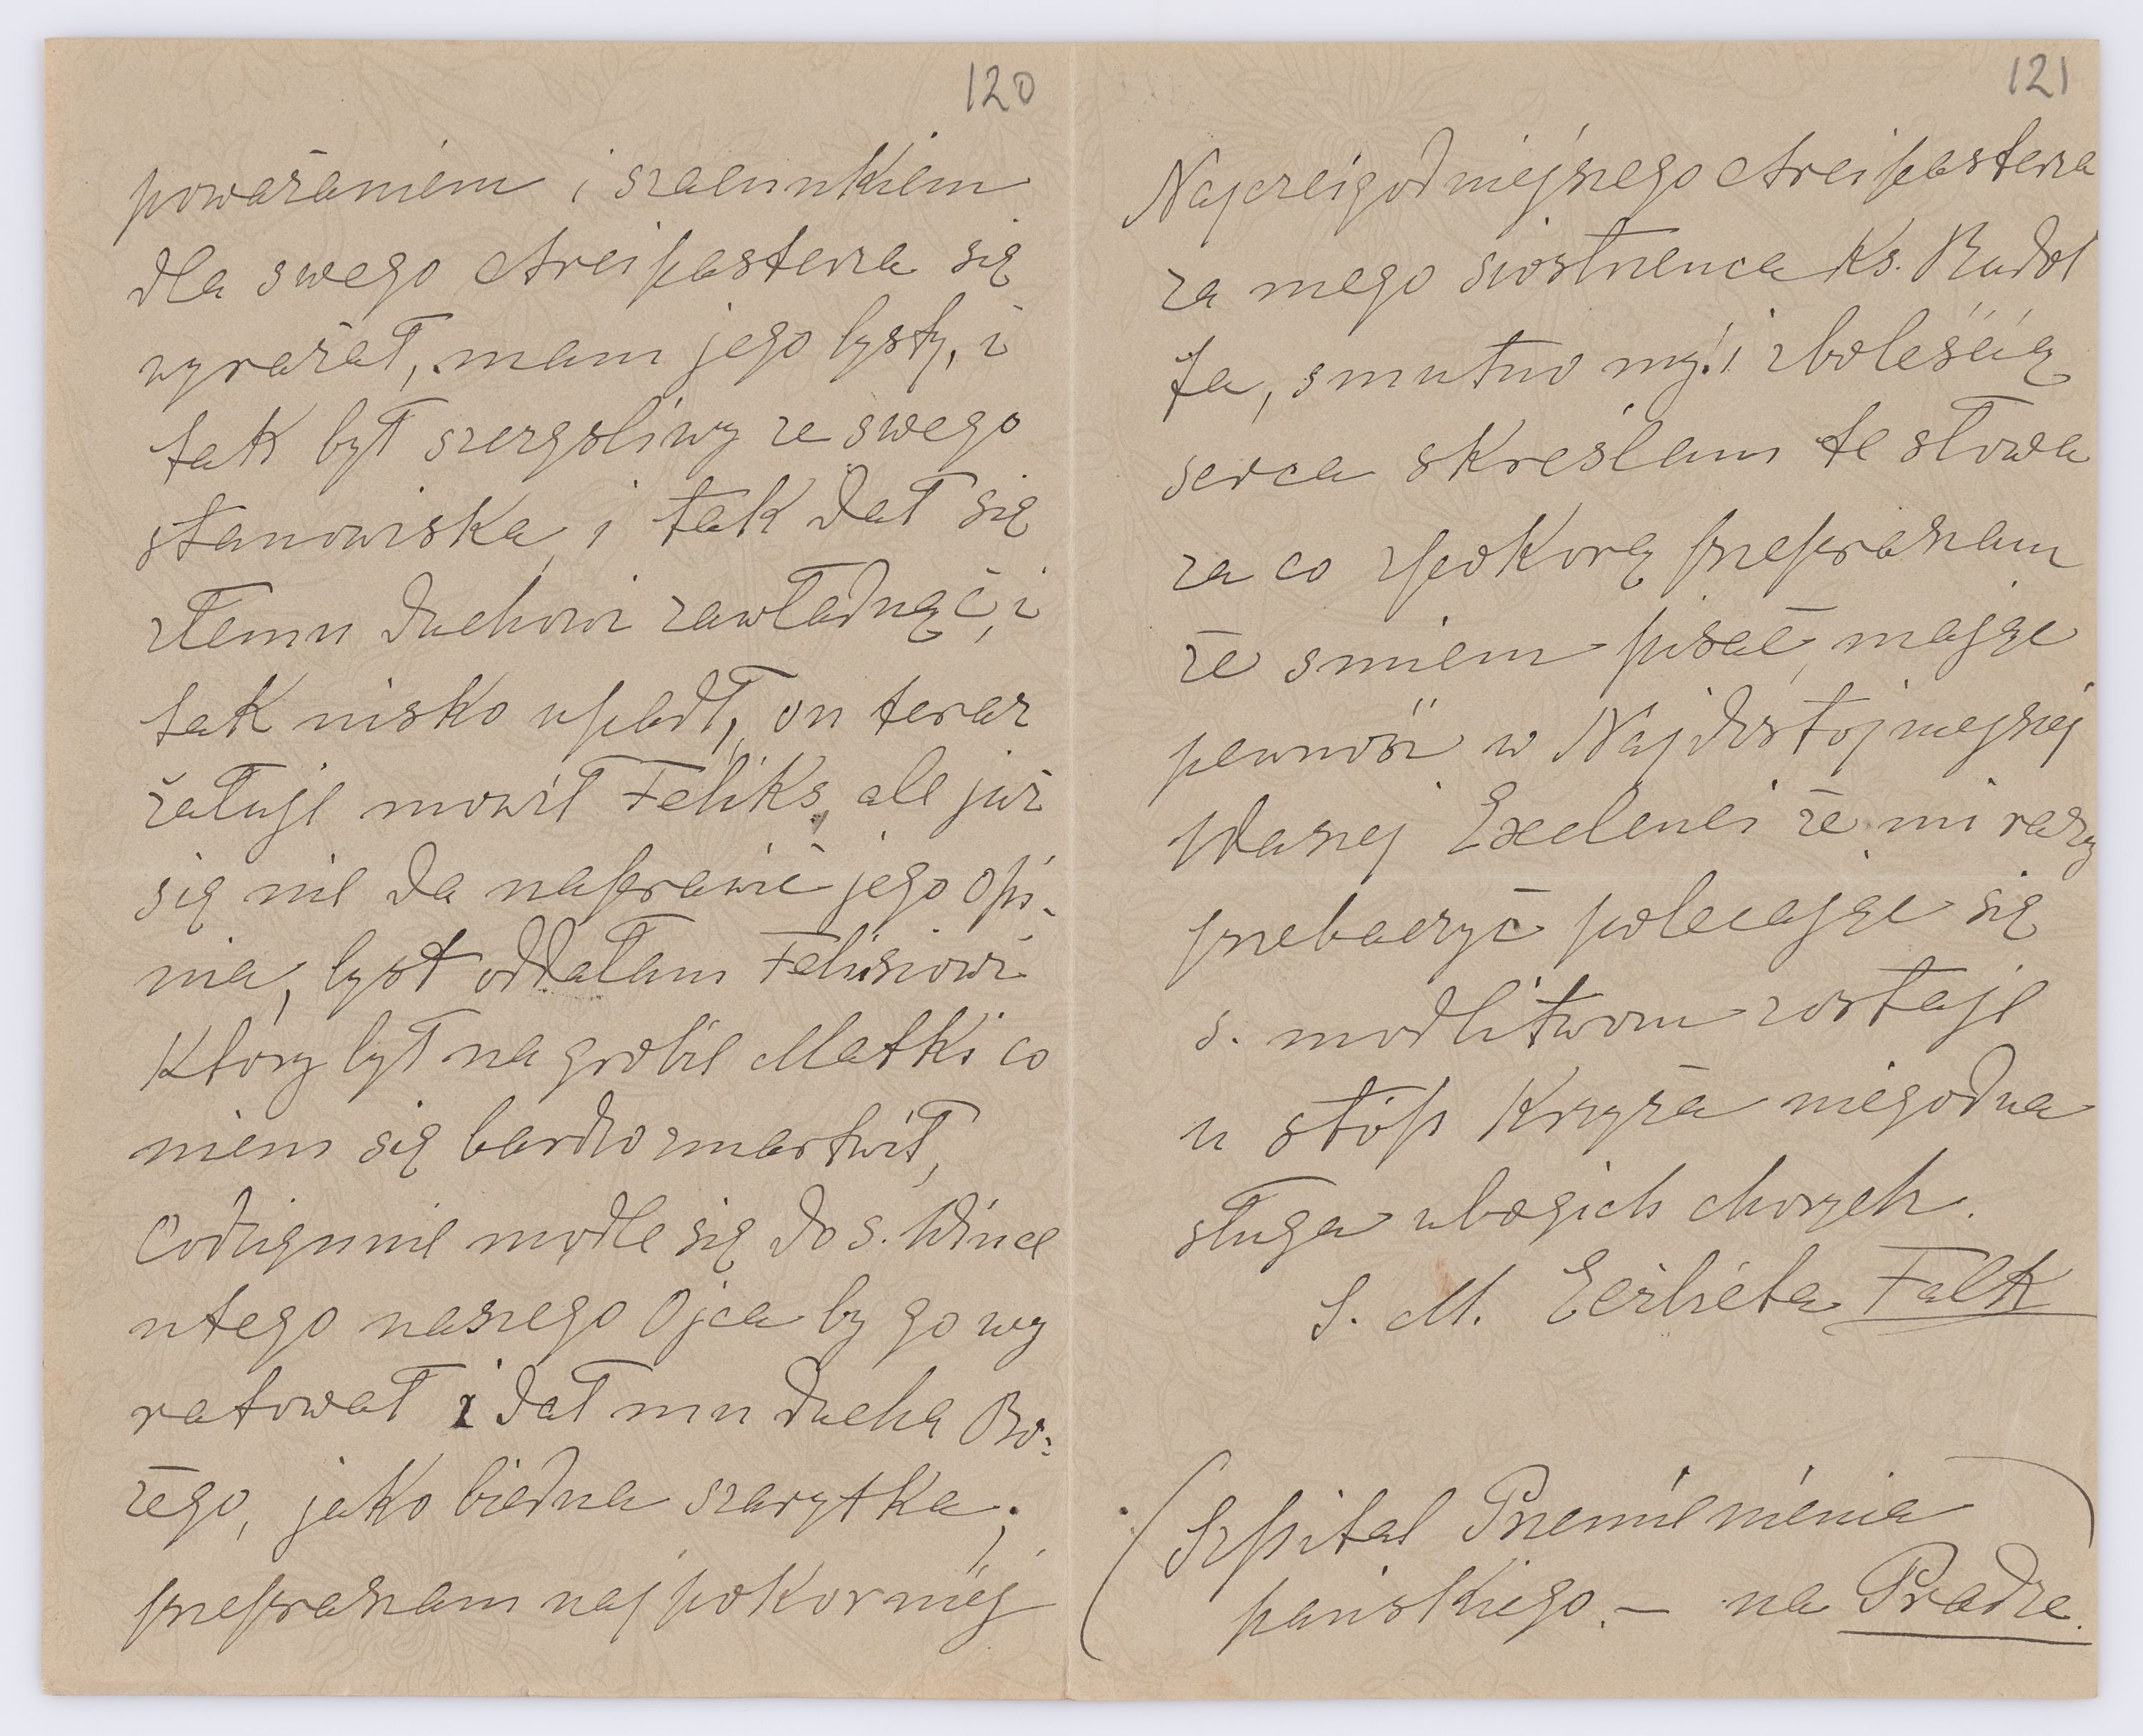 120
poważaniem i szacunkiem
dla swego Arcipasterza się
wyrażał, mam jego lysty, i
tak był szczęsliwy ze swego
stanowiska, i tak dał się
złemu duchowi zawładnąć, i
tak nisko upadł, on teraz
żałuje mowił Feliks, ale już
się nie da naprawić jego opi-
nia, lyst oddałam Felisiowi
Ktory był na grobie Matki co
niem się bardzo zmartwił,
Codzięnnie mo̧dle się do s. Wince
ntego naszego Ojca by go wy
ratował i dał mu ducha Bo-
żego, jako biedna szarytka,
przepraszam najpokorniej
121
Najczcigodniejszego Arcipasterza
za mego siostrzenca Ks. Rudol
fa, smutno my! i zboleścią
serca skreślam te słowa
za co zpokorą przepraszam
że smiem pisać, mając
pewnośc w Najdostojniejszej
Waszej Excelenci że mi raczy
przebaczyć polecając się
s. modlitwom zostaje
u stóp Krzyża niegodna
sługa ubogich chorych.
S. M. Elżbieta Falk
(Szpital Przemienienia
pańskiego. – na Pradze.)